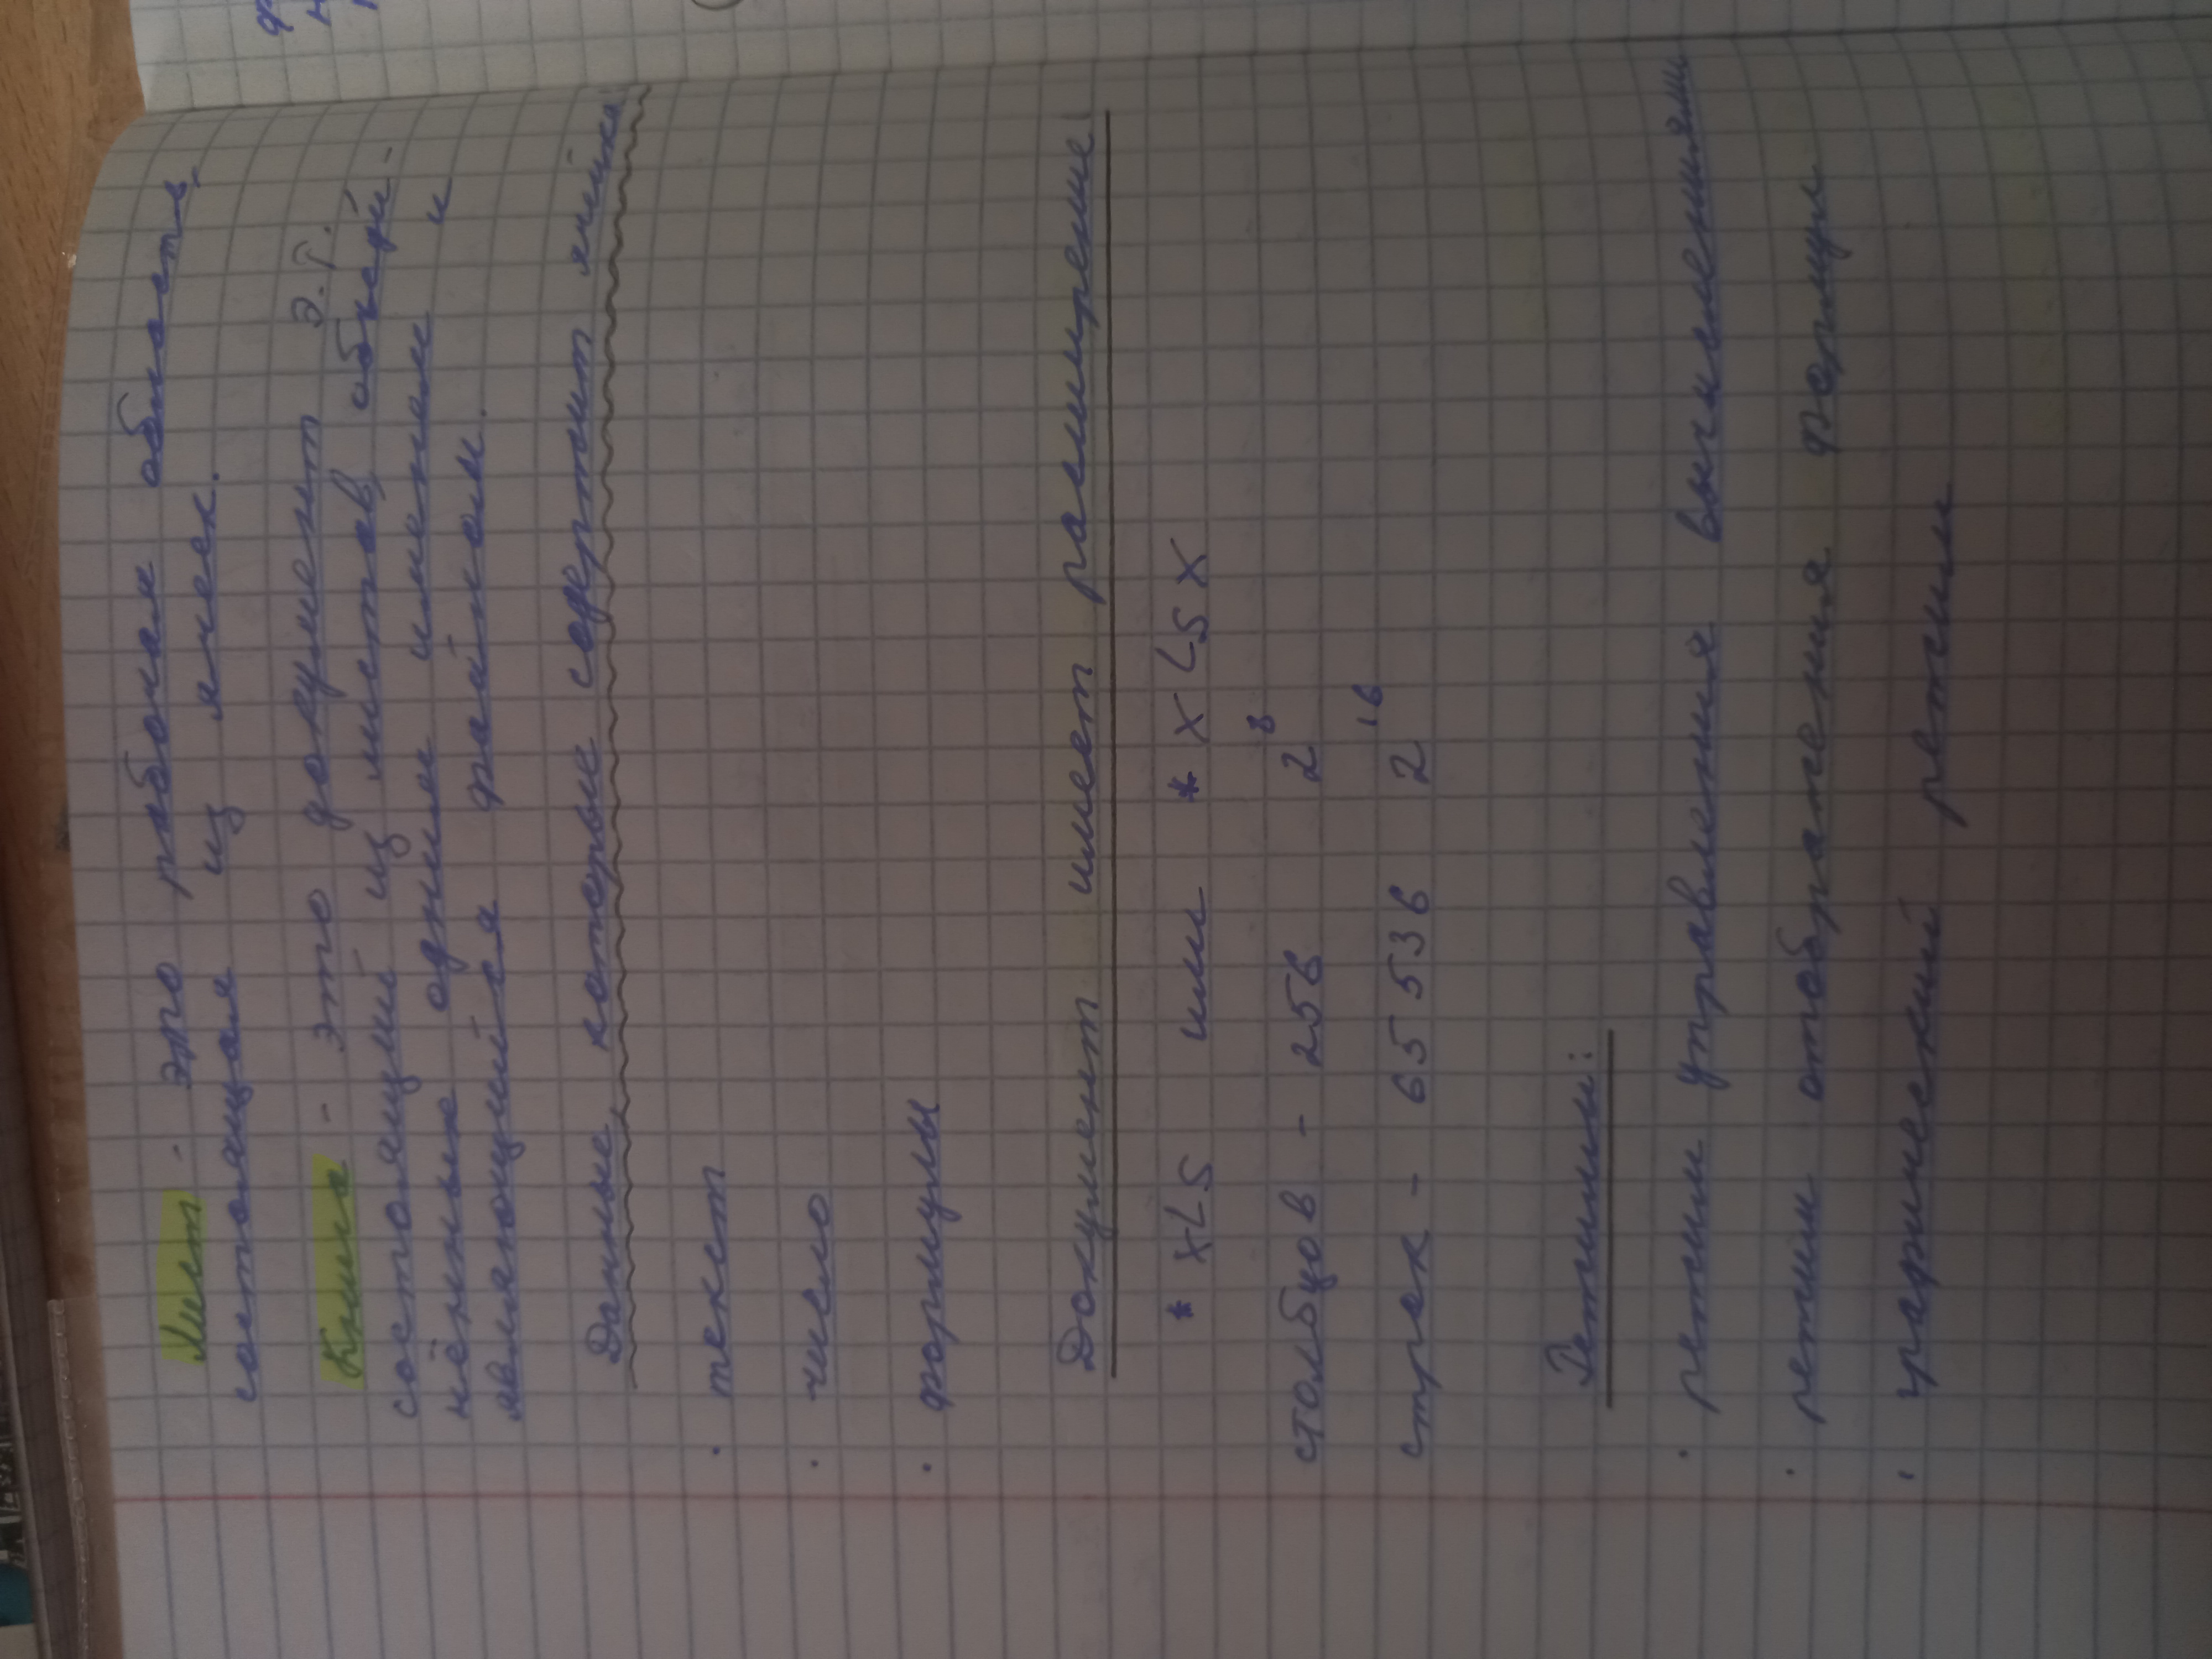 Лист - это рабочая область,
состоящая из ячеек.
Книга - это документ Э.Т.
состоящий из листов, объеди-
нённых одним именем и
являющийся файлом.
Данные, которые содержит ячейка
· текст
· число
· формулы
Документ имеет расширение
* XLS или * XLSX
столбцов - 256 2⁸
строк - 65 536 2¹⁶
Режимы:
· режим управления вычислениями
· режим отображения формул
· графический режим